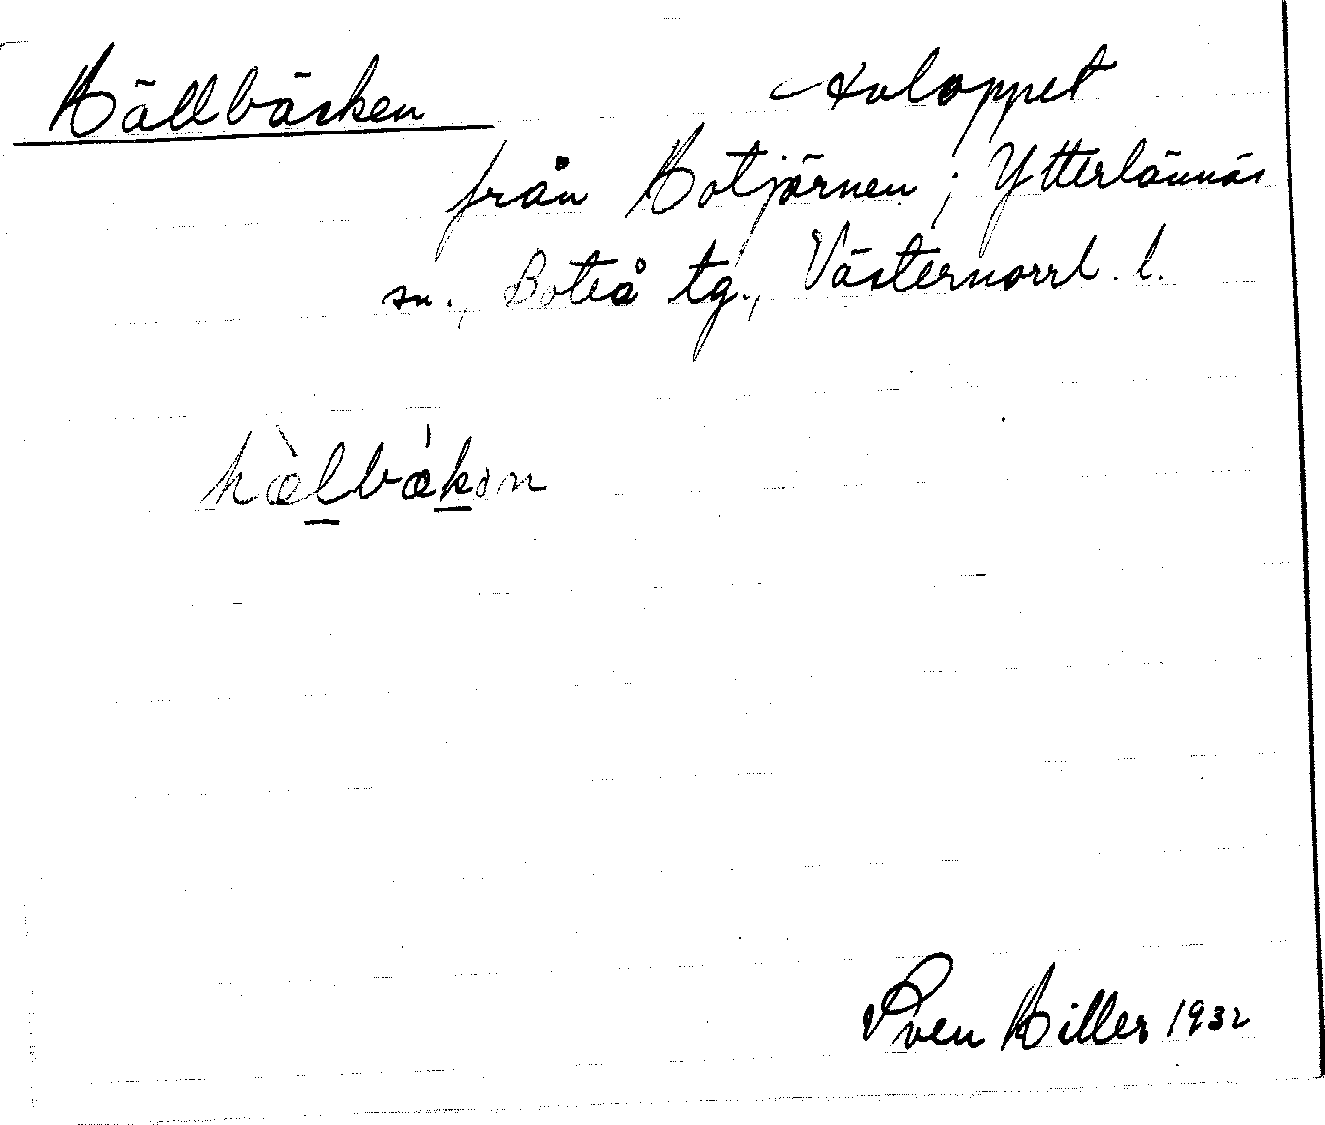 Hällbäcken Avloppet
från Hotjärnen i Ytterlännäs
sn., Boteå tg., Västernorrl. l.
hæ̀lbækən
Sven Hiller 1932